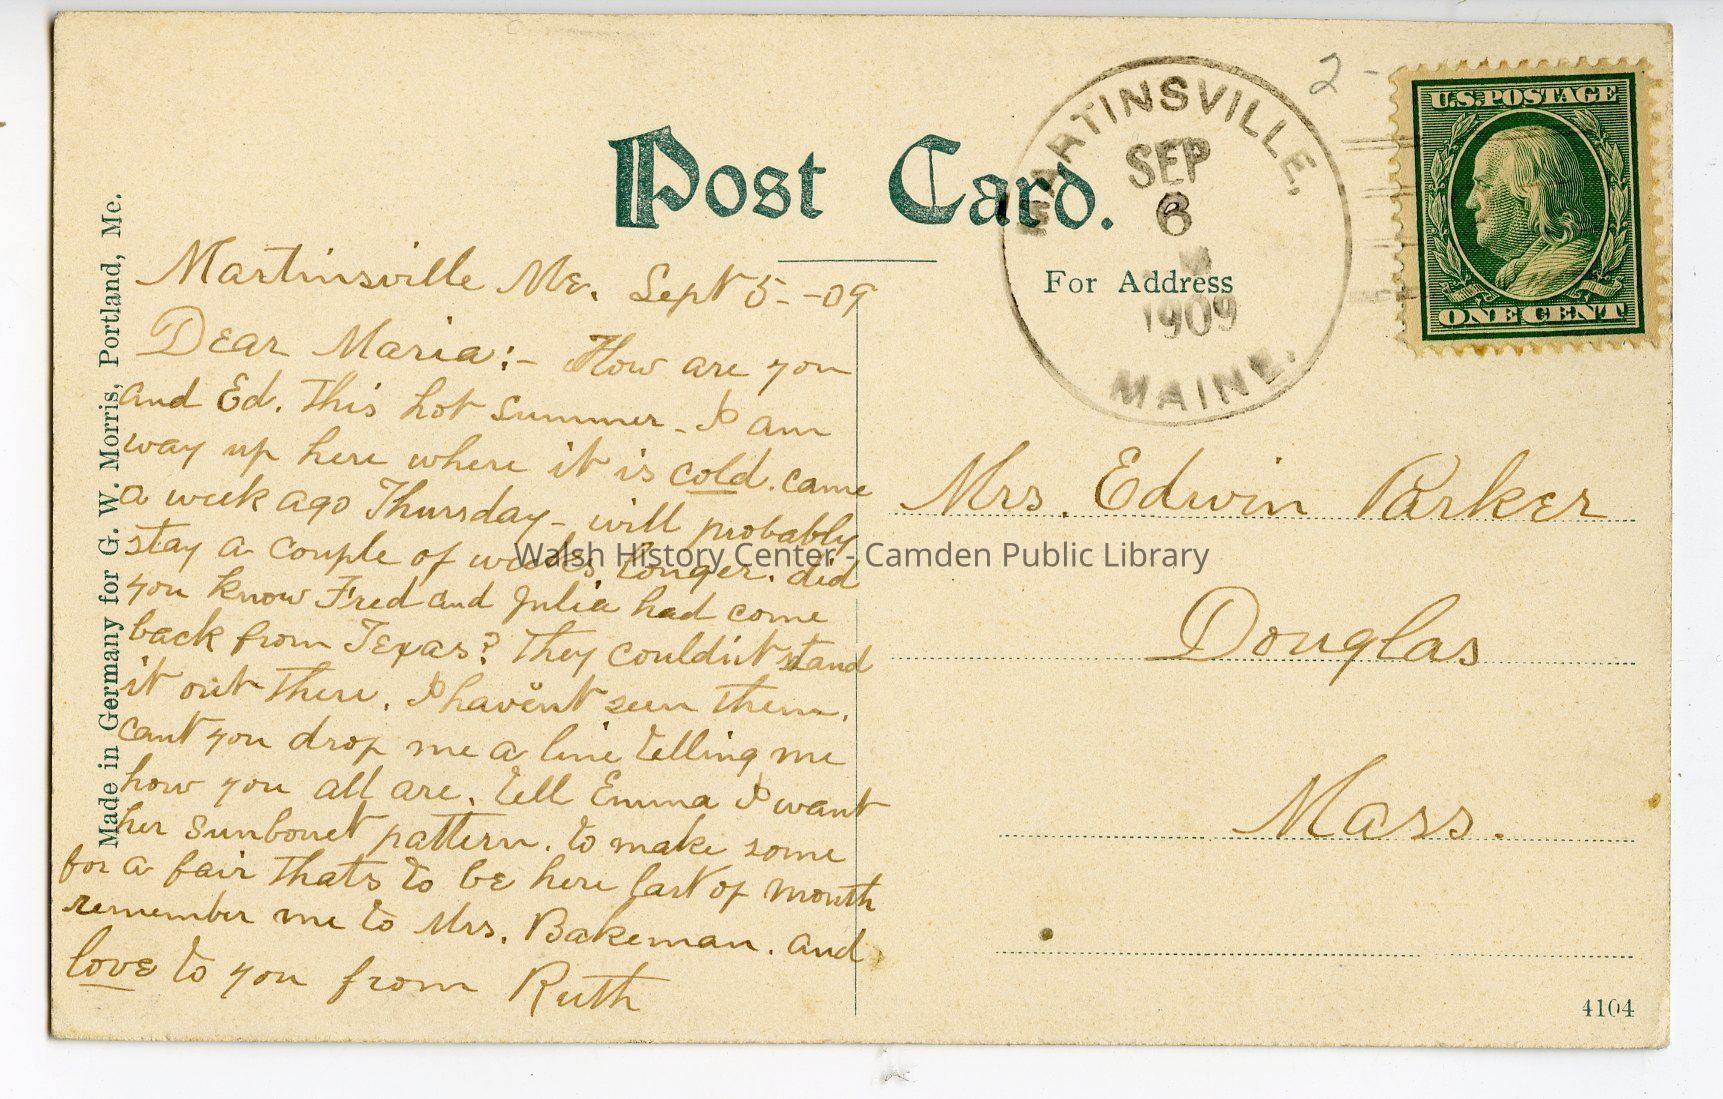 2-
U.S. POSTAGE
ONE CENT
MARTINSVILLE,
SEP
6
1909
MAINE.
Post Card.
For Address
Made in Germany for G. W. Morris, Portland, Me.
Martinsville Me. Sept 5--09
Dear Maria:- How are you
and Ed. this hot summer - I am
way up here where it is cold. came
a week ago Thursday - will probably
stay a couple of weeks longer. did
you know Fred and Julia had come
back from Texas? They couldn't stand
it out there. I haven't seen them.
cant you drop me a line telling me
how you all are. tell Emma I want
her sunbonet pattern. to make some
for a fair thats to be here last of month
remember me to Mrs. Bakeman. and
love to you from Ruth
Mrs. Edwin Parker
Douglas
Mass.
4104
Walsh History Center - Camden Public Library